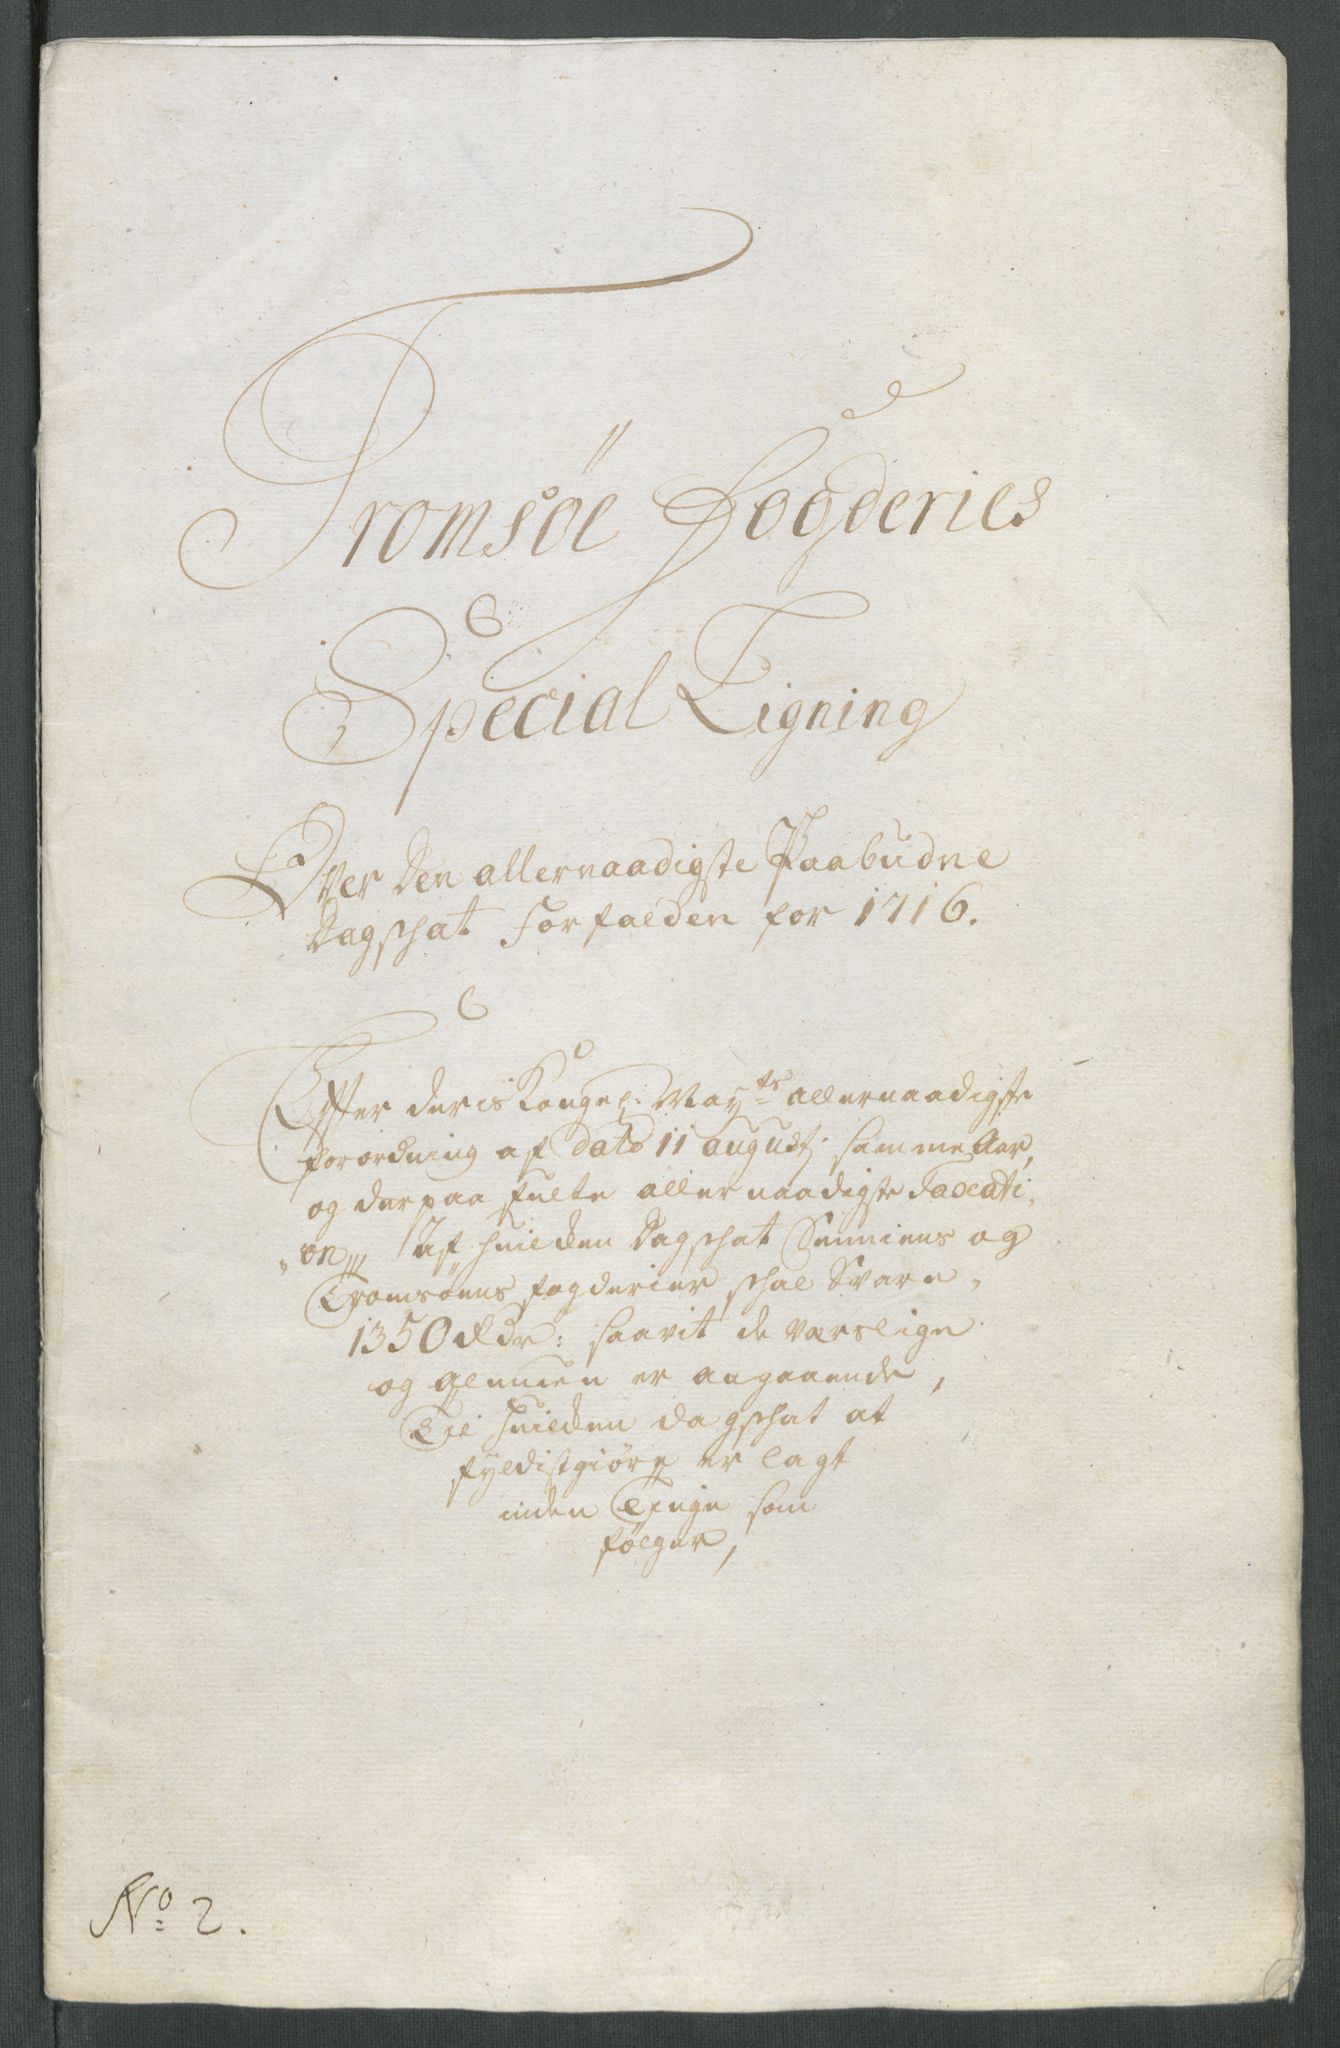 Tromsøe Fogderies
Special Ligning
Over den allernaadigste Paabudne
Dagschat Forfalden for 1716.
Efter deris Kongel: May^ts allernaadigste
forordning af dato 11 august: samme Aar,
og derpaa fulte allernaadigste Taxati
on, Af huilcken Dagschat Senniens og
Tromsøens fogderier schal Svare,
1350 Rdr: saavit de værslige
og almuen er angaaende,
Til huilcken dagschat at
fyldistgiøre er lagt
inden Tinge som
følger,
No: 2.